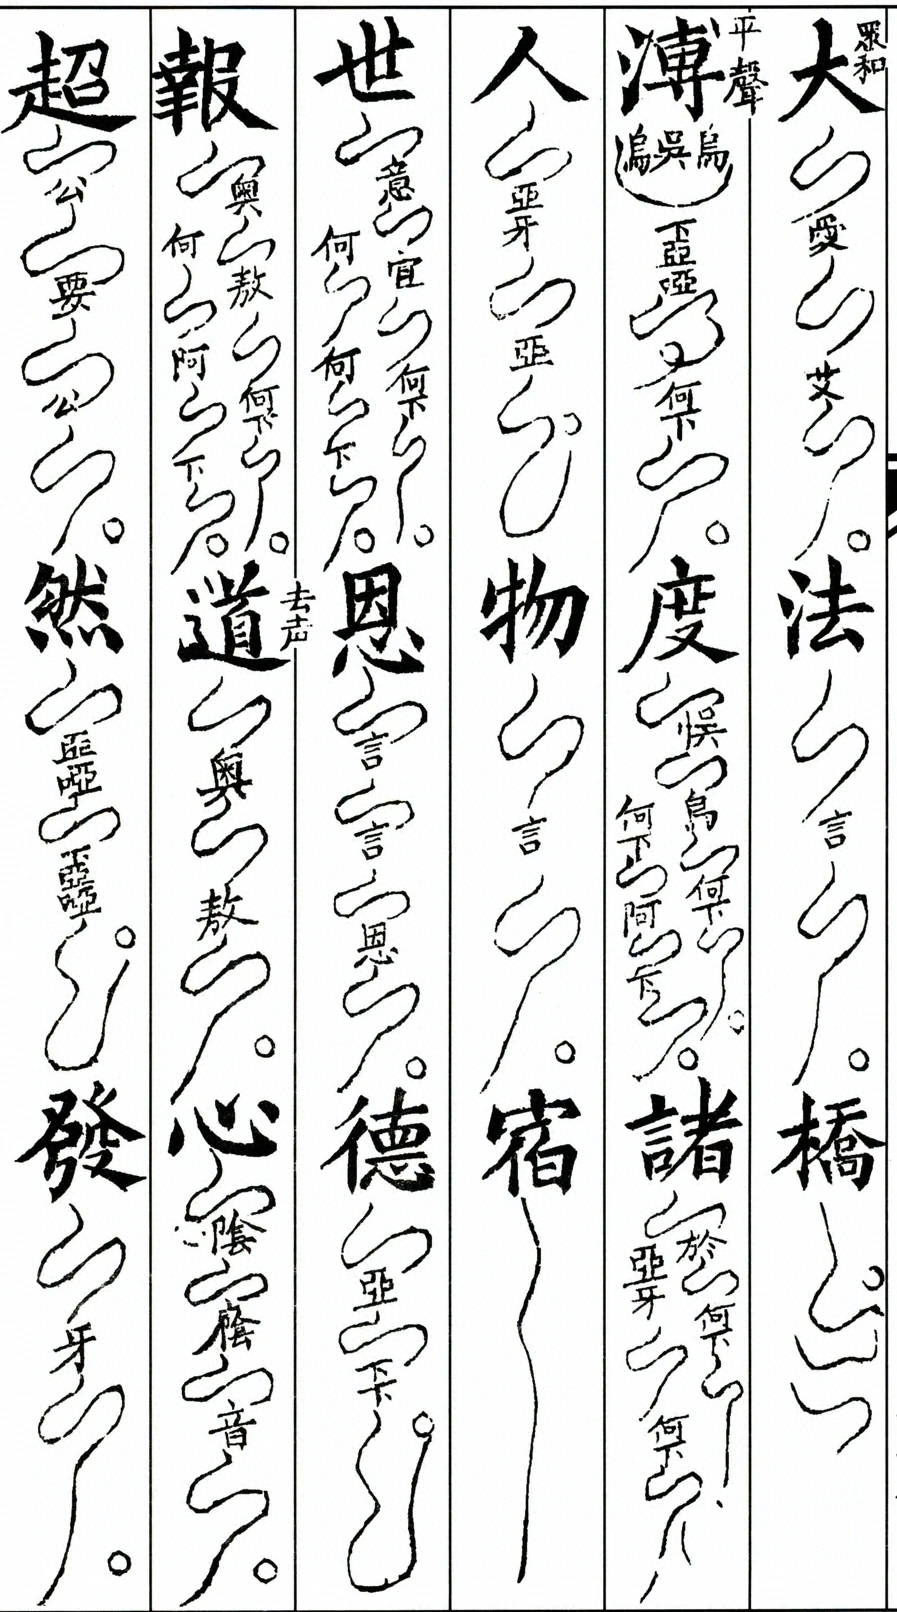 眾和 大 愛 艾 法 言 橋
平聲 溥 烏吳嗚 下亞啞 何下 度 悞 烏 何下 何下 阿 下 諸 於 何下 亞牙 何下
人 亞牙 亞 物 言 宿
世 意 宜 何下 何 何 下 恩 言 言 恩 德 亞 下下
報 奧 敖 何下 何 阿 下 道 去声 奧 敖 心 陰 音
超 公 要 公 然 啞 發 牙